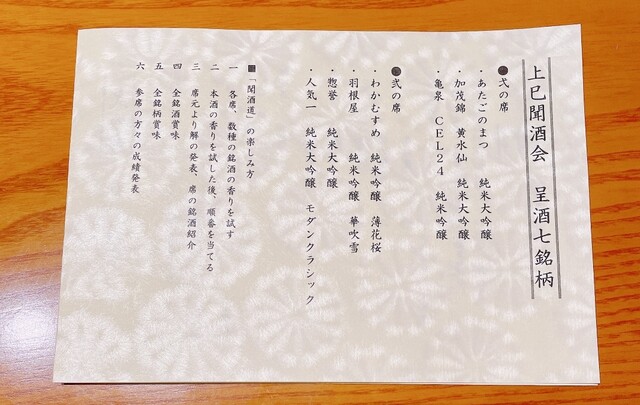 上巳聞酒会 呈酒七銘柄
●弌の席
・あたごのまつ 純米大吟醸
・加茂錦 黄水仙 純米大吟醸
・亀泉 CEL24 純米吟醸
●弐の席
・わかむすめ 純米吟醸 薄花桜
・羽根屋 純米吟醸 華吹雪
・惣誉 純米大吟醸
・人気一 純米大吟醸 モダンクラシック
■「聞酒道」の楽しみ方
一 各席、数種の銘酒の香りを試す
二 本酒の香りを試した後、順番を当てる
三 席元より解の発表、席の銘酒紹介
四 全銘酒賞味
五 全銘柄賞味
六 参席の方々の成績発表